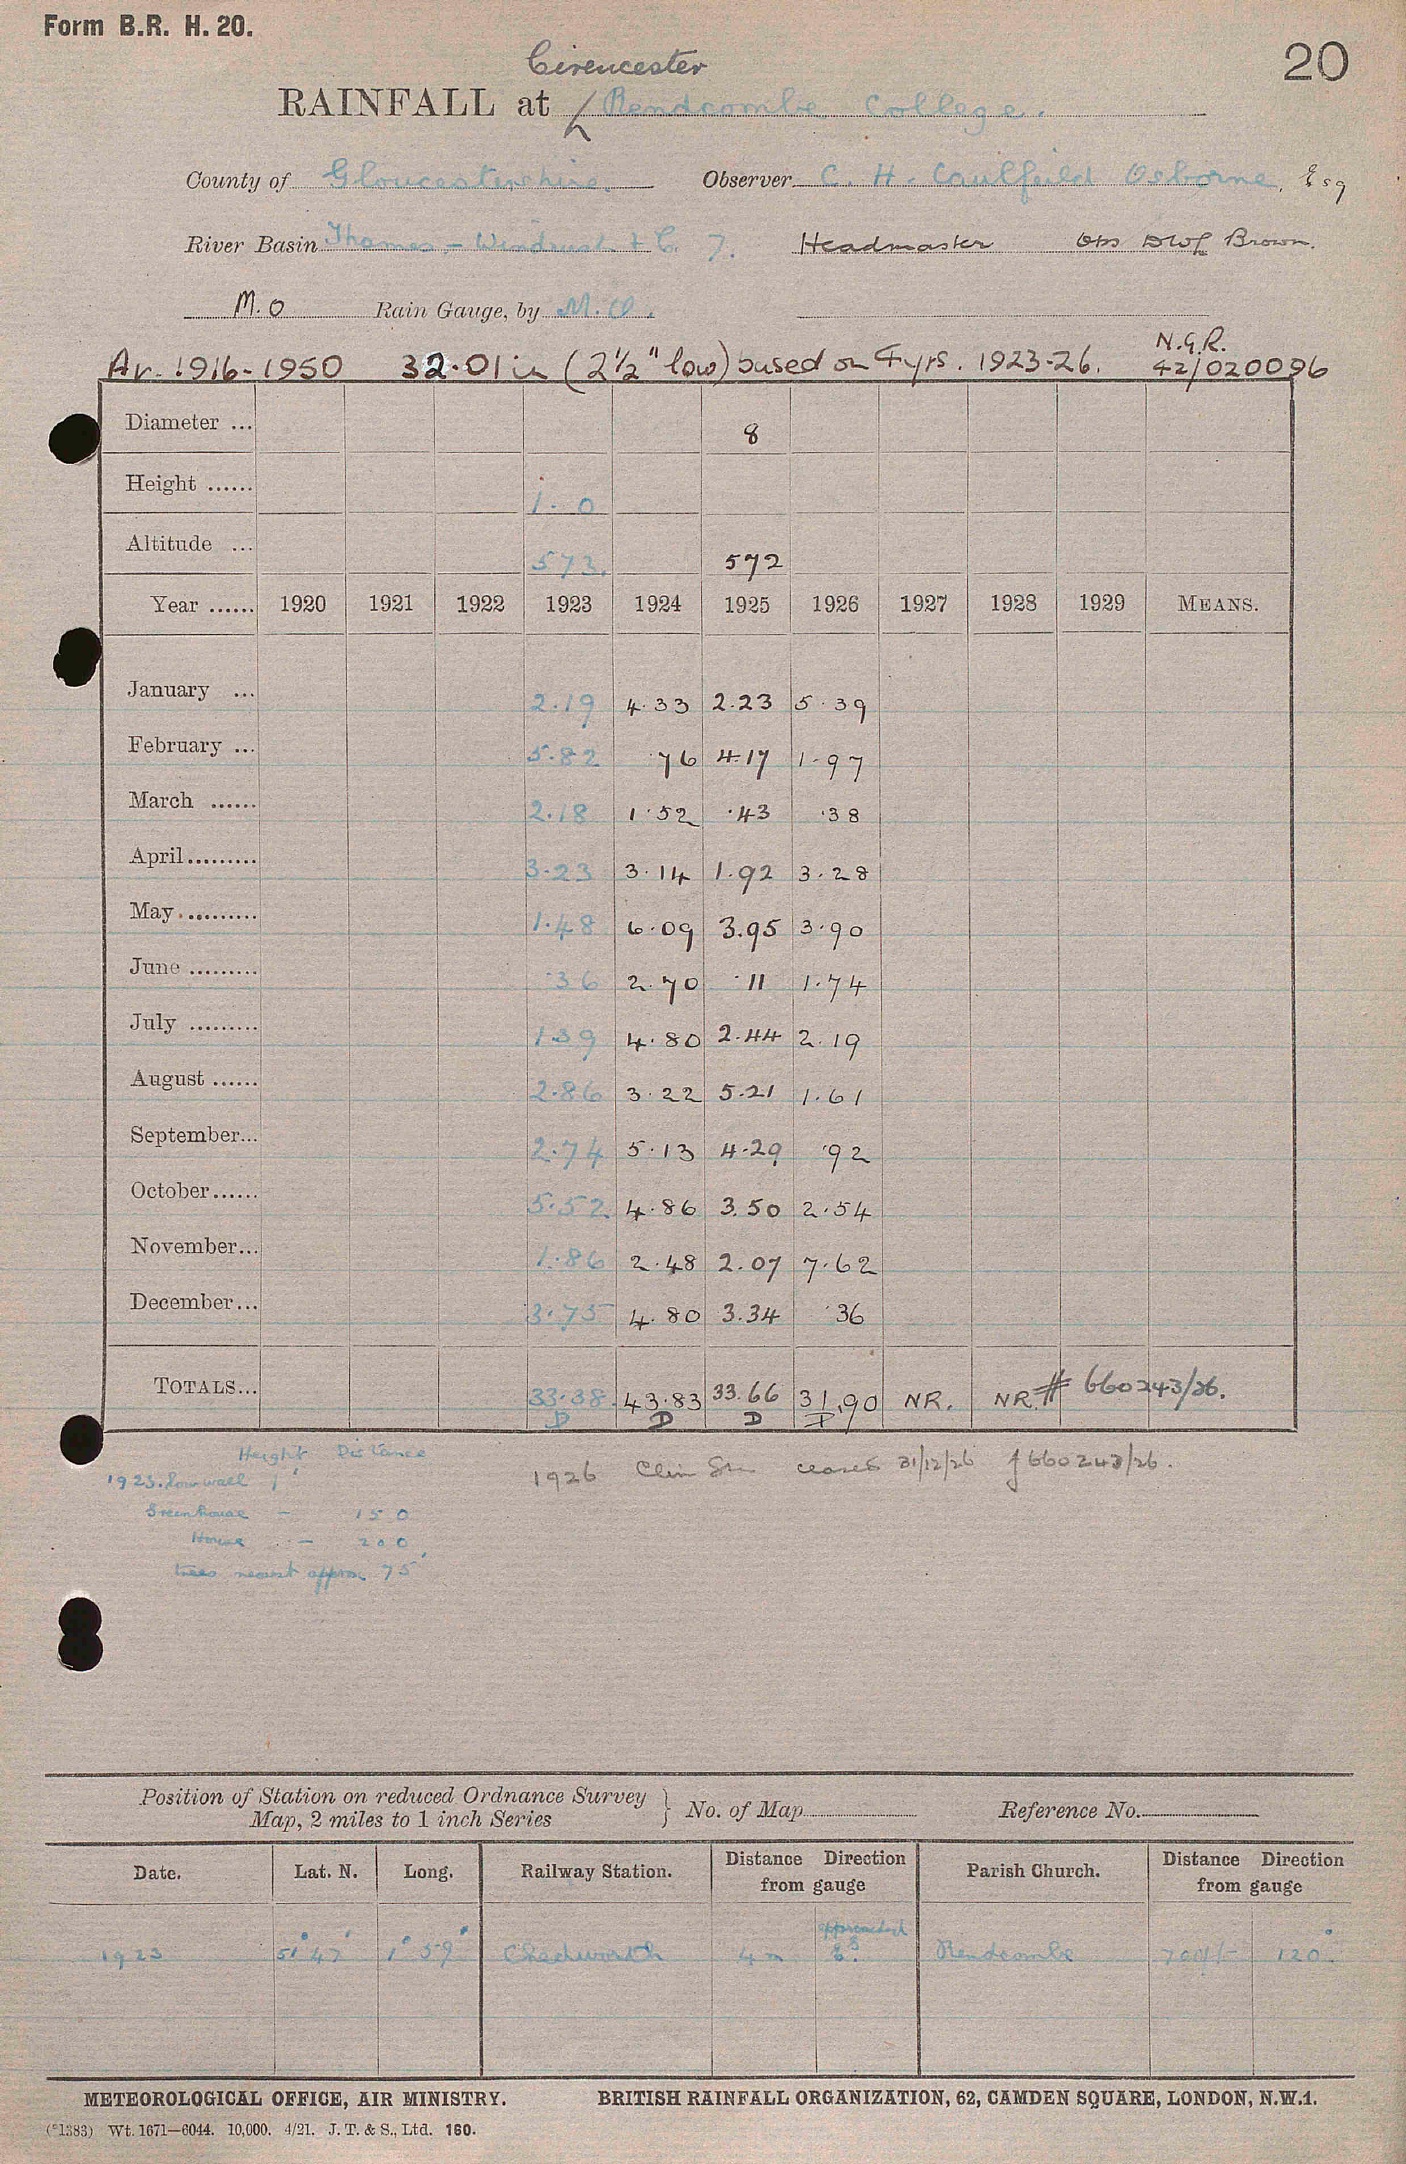 Form B.R. H. 20.
20
Cirencester
RAINFALL at Rendcombe College.
County of Gloucestershire. Observer C. H. Caulfeild Osborne, Esq
River Basin Thames - Windrush & C. 7. Headmaster Obs DWL Brown.
M.O Rain Gauge, by M.O.
N.G.R.
Av. 1916-1950 32.01 in (2½" low) based on 4 yrs. 1923-26. 42/020096
Diameter ... 8
Height ...... 1. 0
Altitude ... 573. 572
Year ...... 1920 1921 1922 1923 1924 1925 1926 1927 1928 1929 MEANS.
January ... 2.19 4.33 2.23 5.39
February ... 5.82 .76 4.17 1.97
March ...... 2.18 1.52 .43 .38
April......... 3.23 3.14 1.92 3.28
May .......... 1.48 6.09 3.95 3.90
June ......... .36 2.70 .11 1.74
July ......... 1.39 4.80 2.44 2.19
August ...... 2.86 3.22 5.21 1.61
September... 2.74 5.13 4.29 .92
October...... 5.52 4.86 3.50 2.54
November... 1.86 2.48 2.07 7.62
December... 3.75 4.80 3.34 .36
TOTALS... 33.38. 43.83 33.66 31.90 NR. NR. # 660243/26.
D D D D
Height Distance
1923. Low wall 1'
Greenhouse - 150
House - 200
trees nearest approx. 75'
1926 Clim Stn ceased 31/12/26 f 660243/26.
Position of Station on reduced Ordnance Survey
Map, 2 miles to 1 inch Series } No. of Map Reference No.
Date. Lat. N. Long. Railway Station. Distance Direction from gauge Parish Church. Distance Direction from gauge
1923 51° 47' 1° 59' Chedworth 4 m E. Rendcombe 700ft 120°
METEOROLOGICAL OFFICE, AIR MINISTRY. BRITISH RAINFALL ORGANIZATION, 62, CAMDEN SQUARE, LONDON, N.W.1.
(*1383) Wt. 1671—6044. 10,000. 4/21. J. T. & S., Ltd. 160.